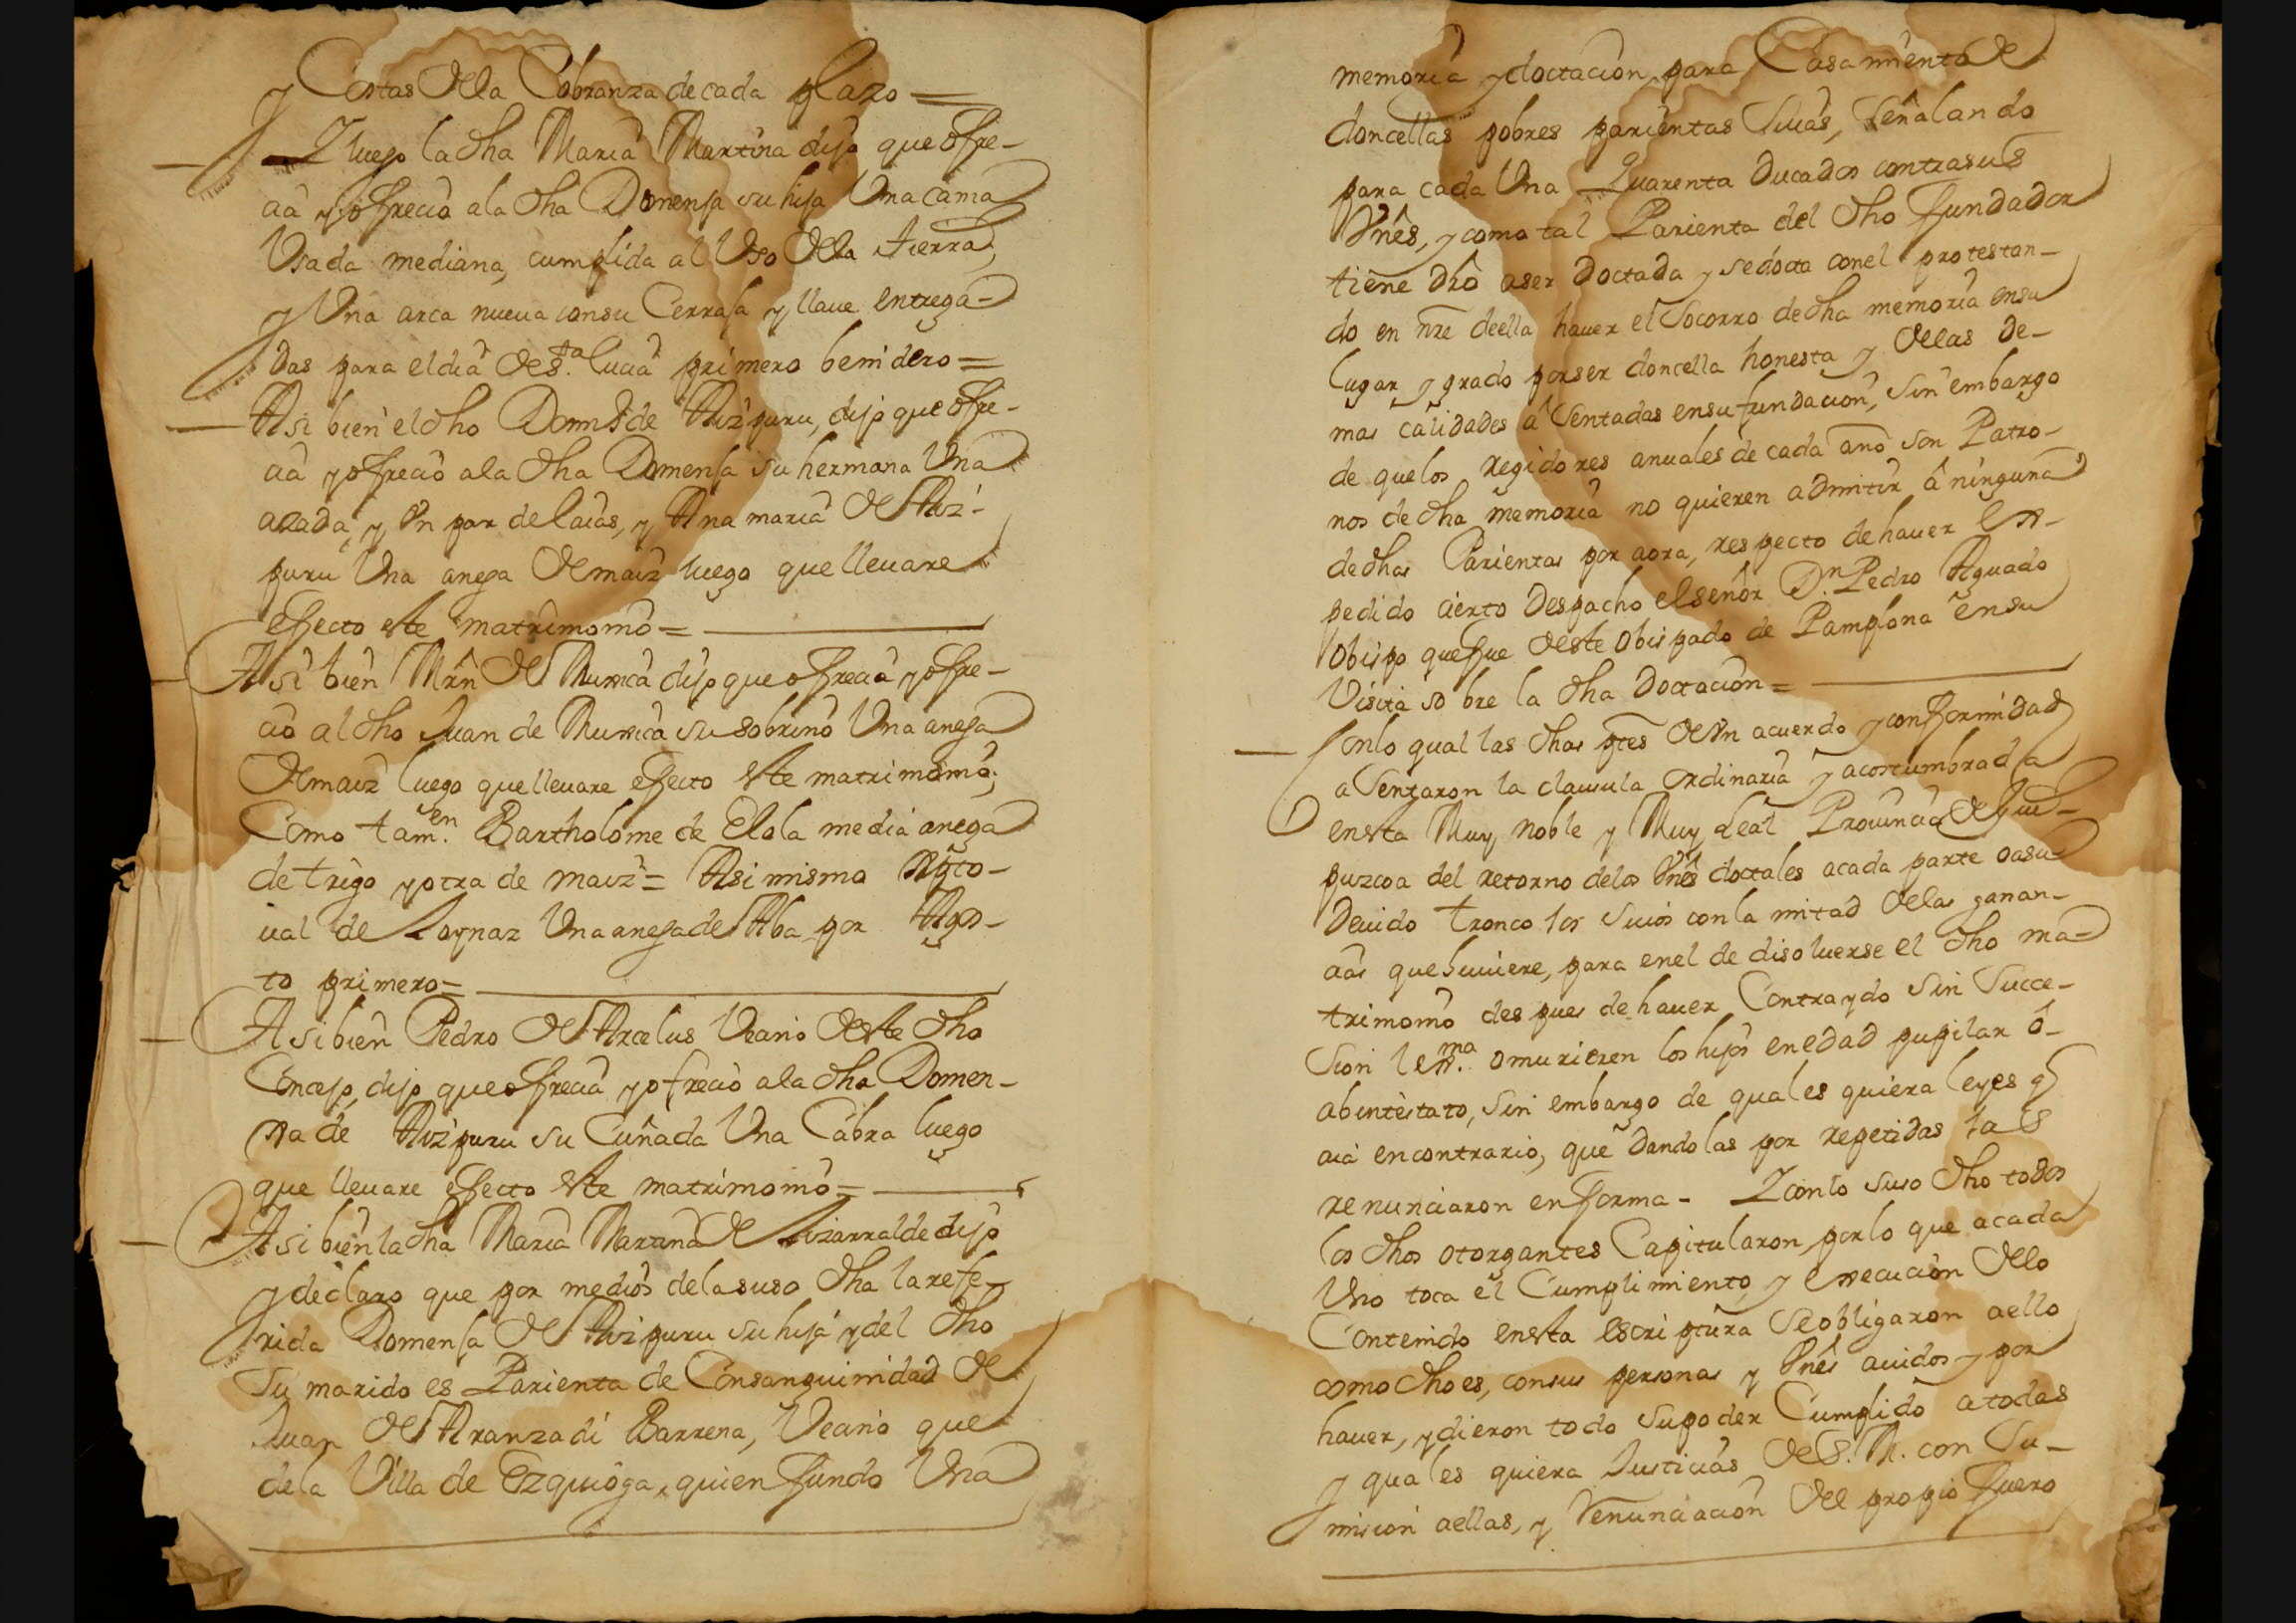 y Costas de la Cobranza de cada plazo =
Y luego la dha Maria Martina dijo que ofre-
cia y ofrecio a la dha Domenja su hija Una cama
Usada mediana, cumplida al Uso de la tierra,
y Una arca nueua con su Cerraja y llaue entrega-
das para el dia de S.ta Lucia primero benidero =
Asi bien el dho Domin.o de Aizpuru, dijo que ofre-
cia y ofrecio a la dha Domenja su hermana Una
azada, y Un par de laias, y Ana maria de Aiz-
puru Una anega de maiz luego que lleuare
efecto este matrimonio =
Asi bien Mrn de Murua dijo que ofrecia y ofre-
cio al dho Juan de Murua su sobrino Una anega
de maiz luego que lleuare efecto este matrimonio;
Como tam.en Bartholome de Elola media anega
de trigo y otra de maiz = Asi mismo
ual de Loynaz Una anega de Aba por Agos-
to primero =
Asi bien Pedro de Arcelus Vecino de este dho
Concejo, dijo que ofrecia y ofrecio a la dha Domen-
xa de Aizpuru su Cuñada Una Cabra luego
que lleuare efecto este matrimonio =
Asi bien la dha Maria Martina de Lizarralde dijo
y declaro que por medios de la suso dha la refe-
rida Domenja de Aizpuru su hija y del dho
su marido es Parienta de Consanguinidad de
Juan de Aranzadi Barrena, Vecino que
de la Villa de Ezquioga, quien fundo Una
memoria y doctacion para Casamiento de
doncellas pobres parientas Suias, Señalando
para cada Una Quarenta Ducados contra sus
Vnês, y como tal Parienta del dho fundador
tiene dho a ser Doctada y se docta con el protestan-
do en nre de ella hauer el Socorro de dha memoria en su
lugar y grado por ser doncella honesta y de las de-
mas calidades aSentadas en su fundacion, Sin embargo
de que los regidores anuales de cada año son Patro-
nos de dha memoria no quieren admitir â ninguna
de dhas Parientas por aora, respecto de hauer Ex-
pedido cierto Despacho el señor D.n Pedro Aguado
Obispo que fue de este Obispado de Pamplona en su
Visita sobre la dha Doctacion =
Con lo qual las dhas ptes de Vn acuerdo y conformidad
aSentaron la clausula Ordinaria y acostumbrada
en esta Muy noble y Muy Leal Prouincia de Gui-
puzcoa del retorno de los Vnês doctales a cada parte o a su
Deuido tronco los Suios con la mitad de las ganan-
cias que huuiere, para en el de disoluerse el dho ma-
trimonio despues de hauer Contraydo Sin Succe-
sion lex.ma o murieren los hijos en edad pupilar ô-
abintestato, Sin embargo de quales quiera leyes q
aia en contrario, que dandolas por repetidas las
renunciaron en forma - Y con lo suso dho todos
los dhos otorgantes Capitularon, por lo que a cada
Uno toca el Cumplimiento, y Execucion de lo
Contenido en esta escriptura Se obligaron a ello
como dho es, con sus personas y Vnês auidos y por
hauer, y dieron todo su poder Cumplido a todas
y quales quiera Justicias de S. M. con Su-
mision a ellas, y Renunciacion del propio fuero